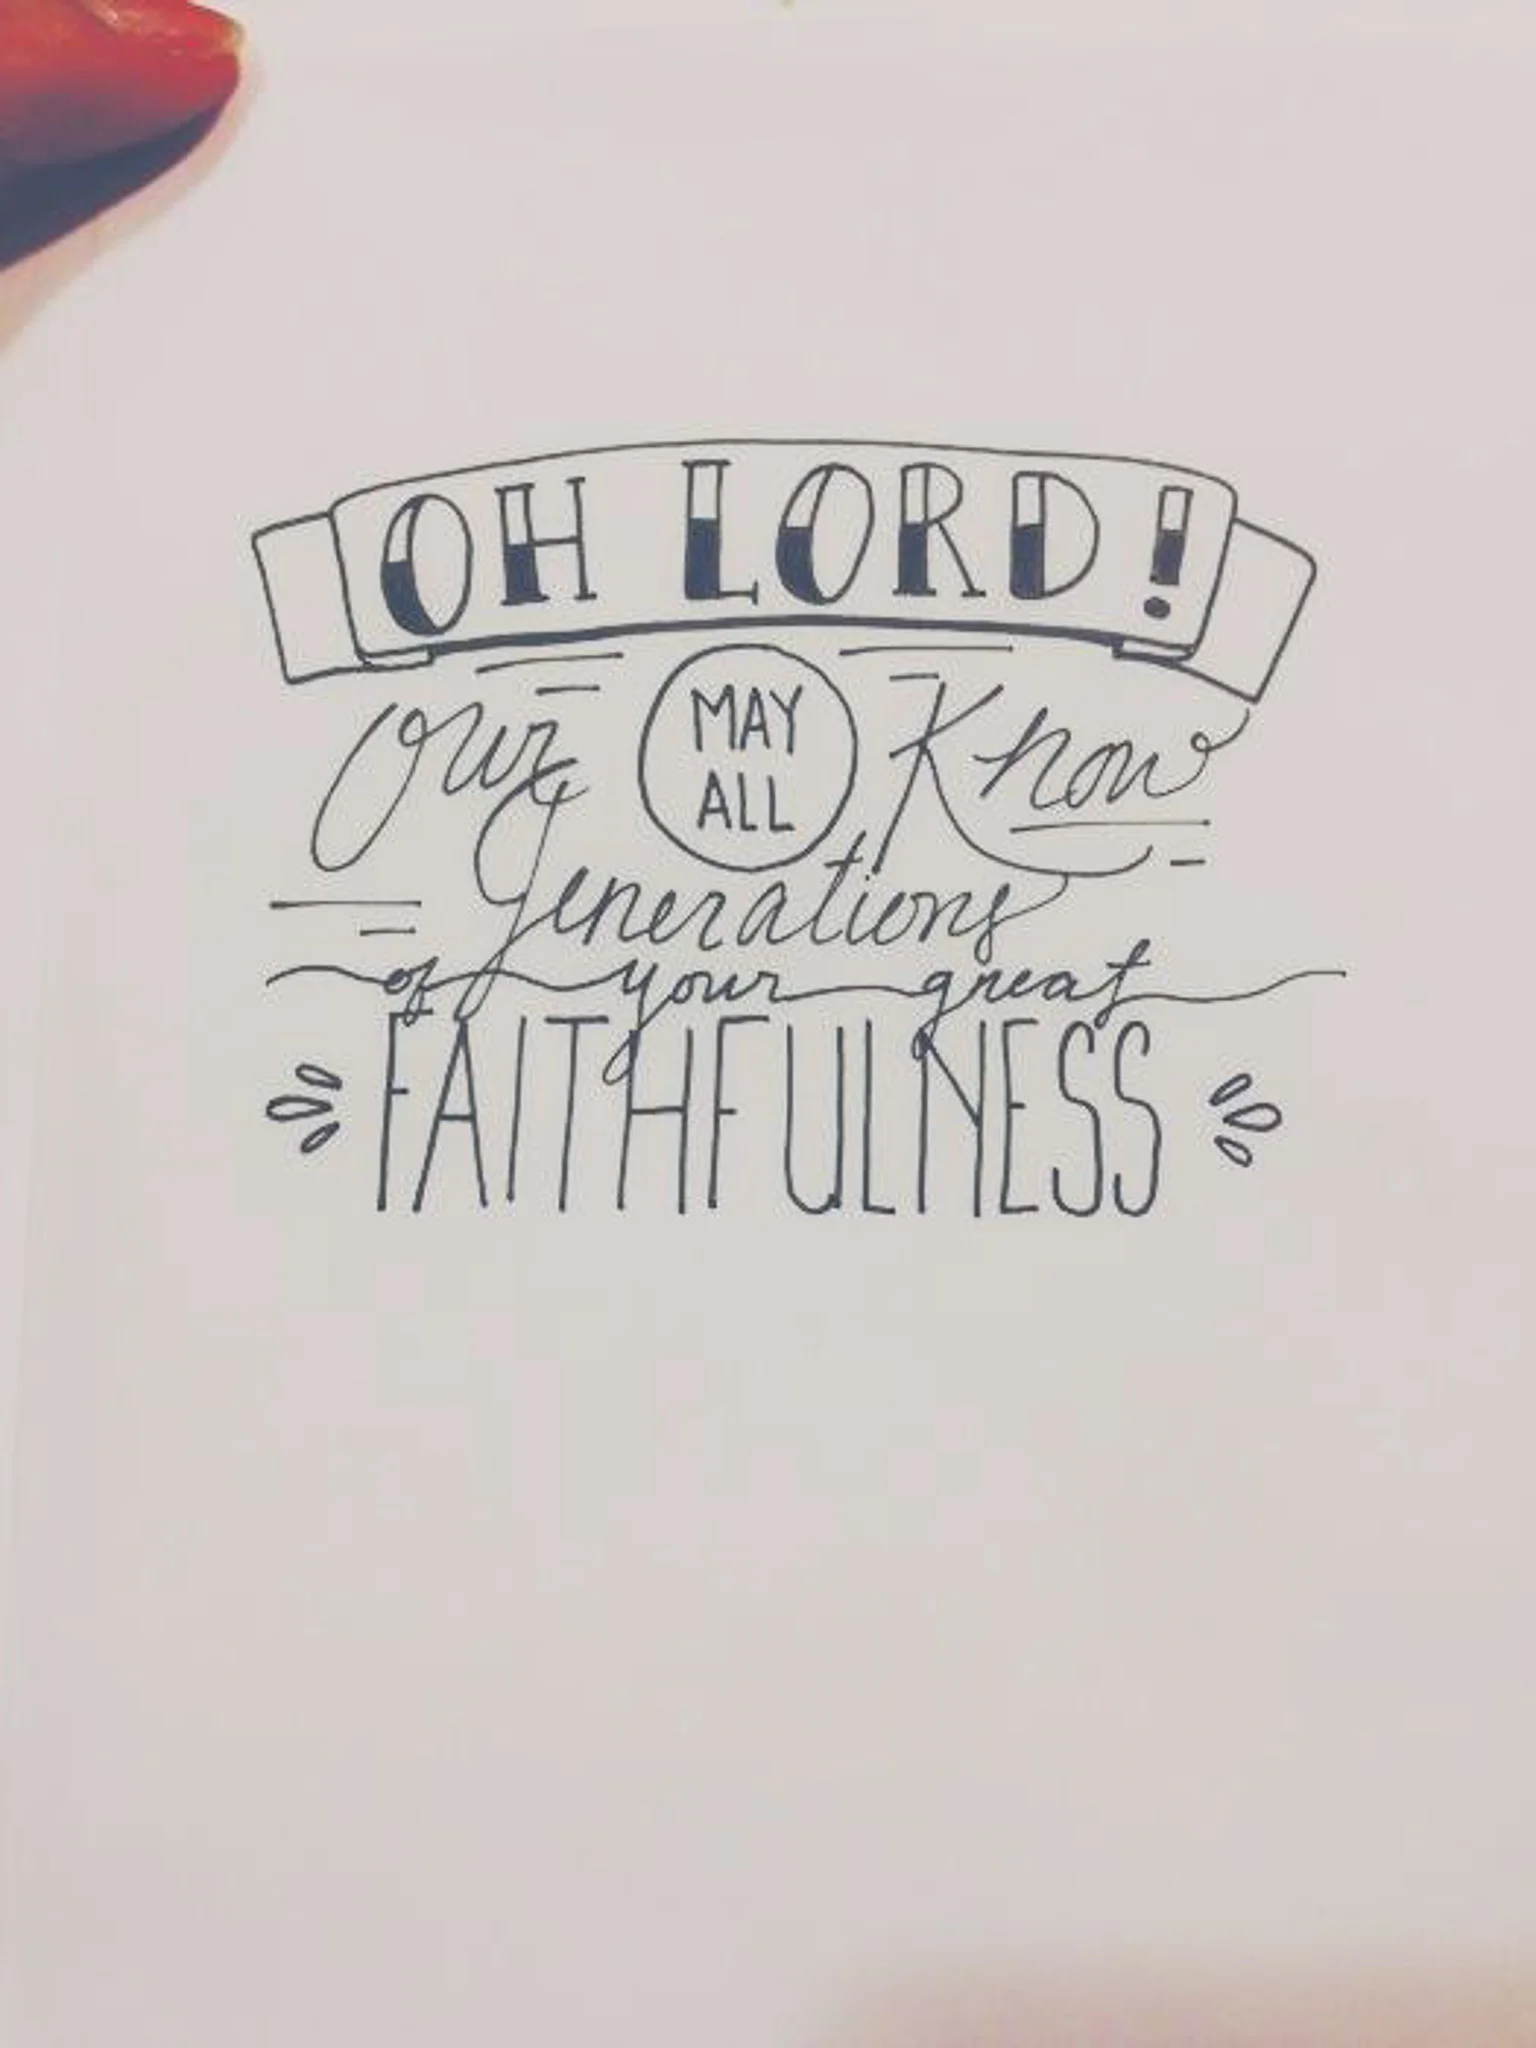 OH LORD!
Our MAY ALL Know
Generations
of your great
FAITHFULNESS